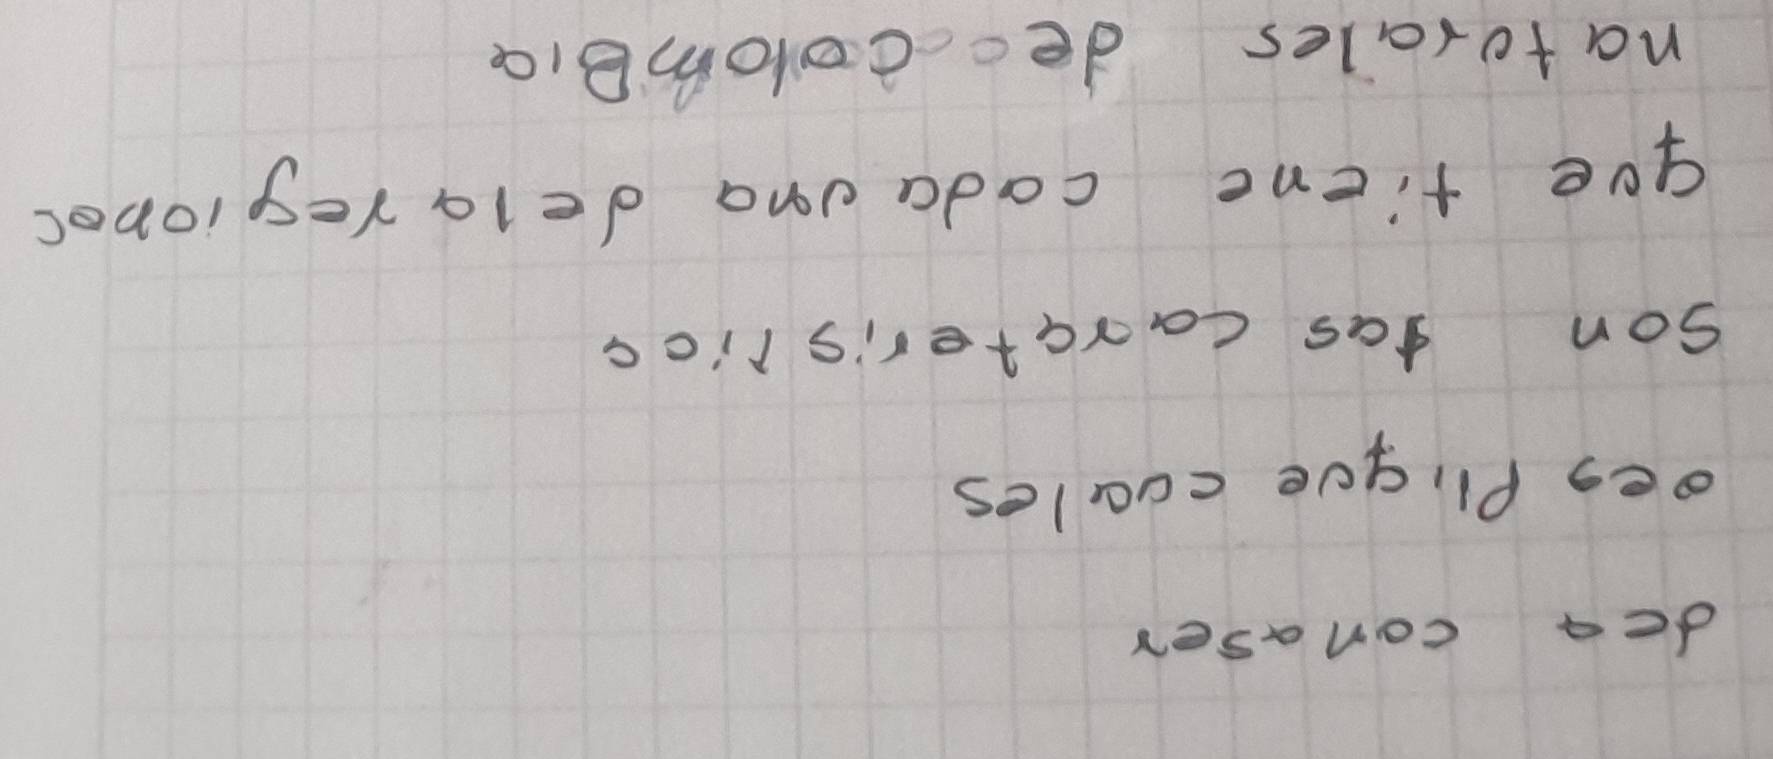 dea conaser
oes plique cuales
son las caarateristica
que tiene cada una dela regiones
naturales de ColomBia